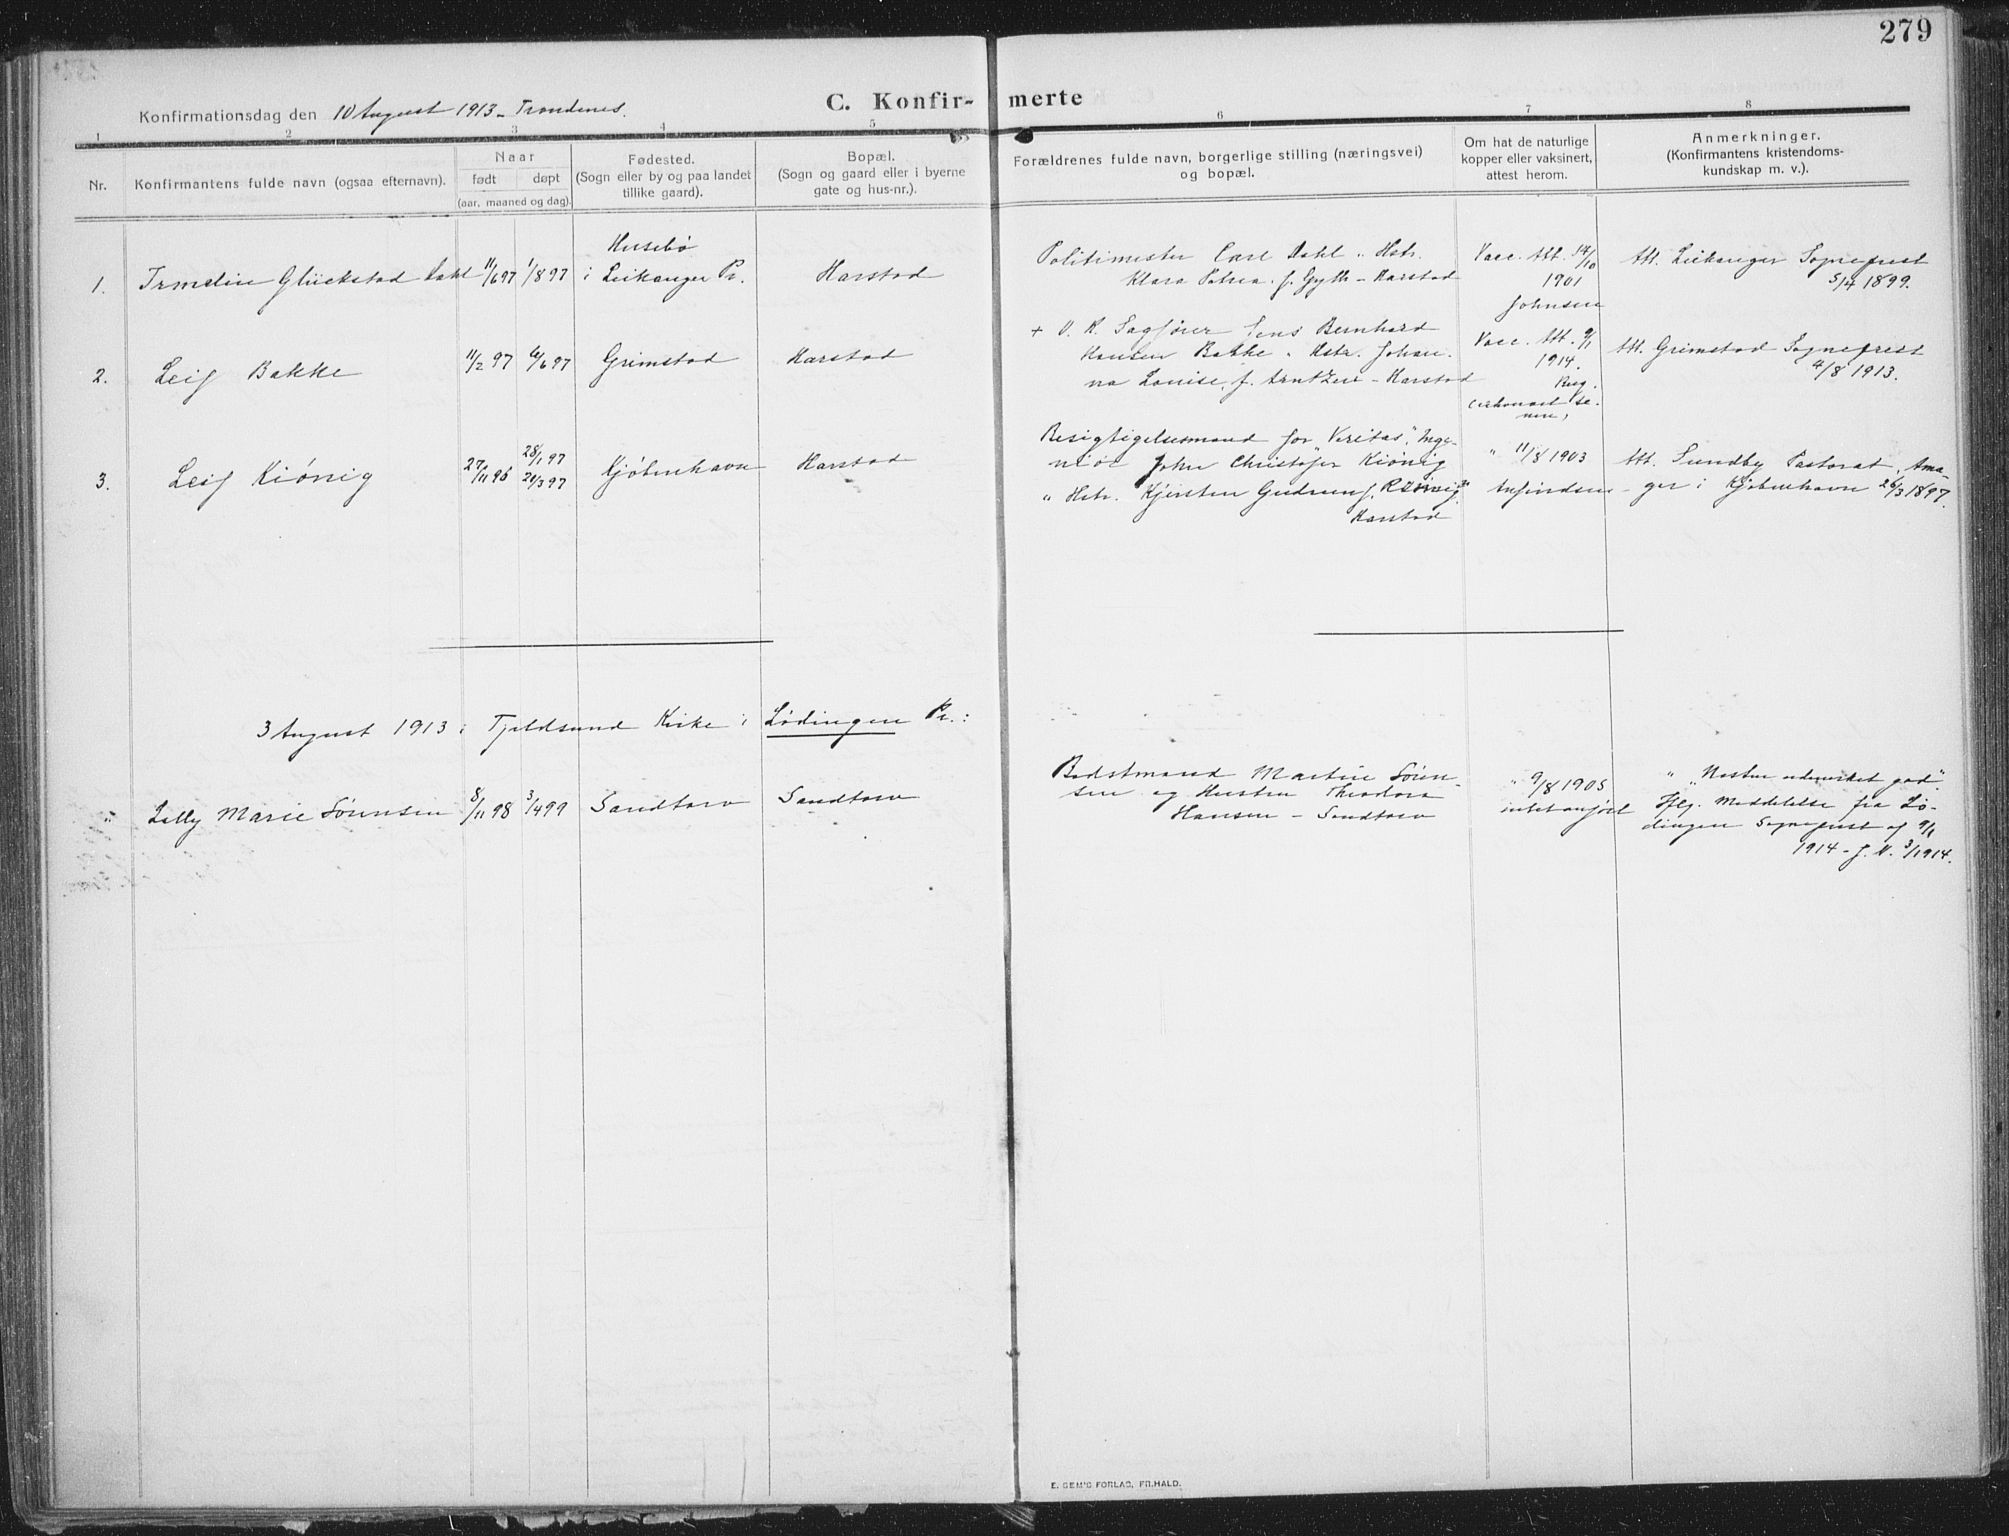 279
Konfirmationsdag den 10 August 1913 - Trondenes.
C. Konfirmerte
1 2 3 4 5 6 7 8
Nr.
Konfirmantens fulde navn (ogsaa efternavn).
Naar
født døpt
(aar, maaned og dag).
Fødested.
(Sogn eller by og paa landet
tillike gaard).
Bopæl.
(Sogn og gaard eller i byerne
gate og hus-nr.).
Forældrenes fulde navn, borgerlige stilling (næringsvei)
og bopæl.
Om hat de naturlige
kopper eller vaksinert,
attest herom.
Anmerkninger.
(Konfirmantens kristendoms-
kundskap m. v.).
1. Irmelin Glückstad Dahl
11/6 97
1/8 97
Husebø
i Leikanger Pr.
Harstad
Politimester Carl Dahl " Hstr.
Klara Petrea f. Gyth - Harstad
Vacc. Att. 14/10
1901
Johnsen
Att. Leikanger Sogneprest
5/4 1899.
2. Leif Bakke
11/2 97
6/6 97
Grimstad
Harstad
+ O. R. Sagfører Jens Bernhard
Hansen Bakke " Hstr. Johan-
na Louise, f. Arntzen - Harstad
Vacc. Att. 9/1
1914.
se-
nere,
Att. Grimstad Sogneprest
4/8 1913.
3. Leif Kiønig
27/11 96
28/1 97
21/3 97
Kjøbenhavn
Harstad
Besigtigelsesmand for "Veritas", Inge-
niør John Christofer Kiønig
" Hstr. Kjersten Gudrun f.
Harstad
" 11/8 1903
Anfindsen
Att. Sundby Pastorat, Ama-
ger i Kjøbenhavn 26/3 1897.
3 August 1913 i Tjeldsund Kirke i Lødingen Pr.:
" Lelly Marie Sørensen
8/11 98
3/4 99
Sandtorv
Sandtorv
Baadsmand Martin Søren-
sen og Hustru Theodora
Hansen - Sandtorv
" 9/8 1905
intet anført
" "Næsten udmerket god".
Iflg. Meddelelse fra Lø-
dingen Sogneprest af 9/1
1914 - J. N. 3/1914.
E. SEM'S FORLAG, FR.HALD.